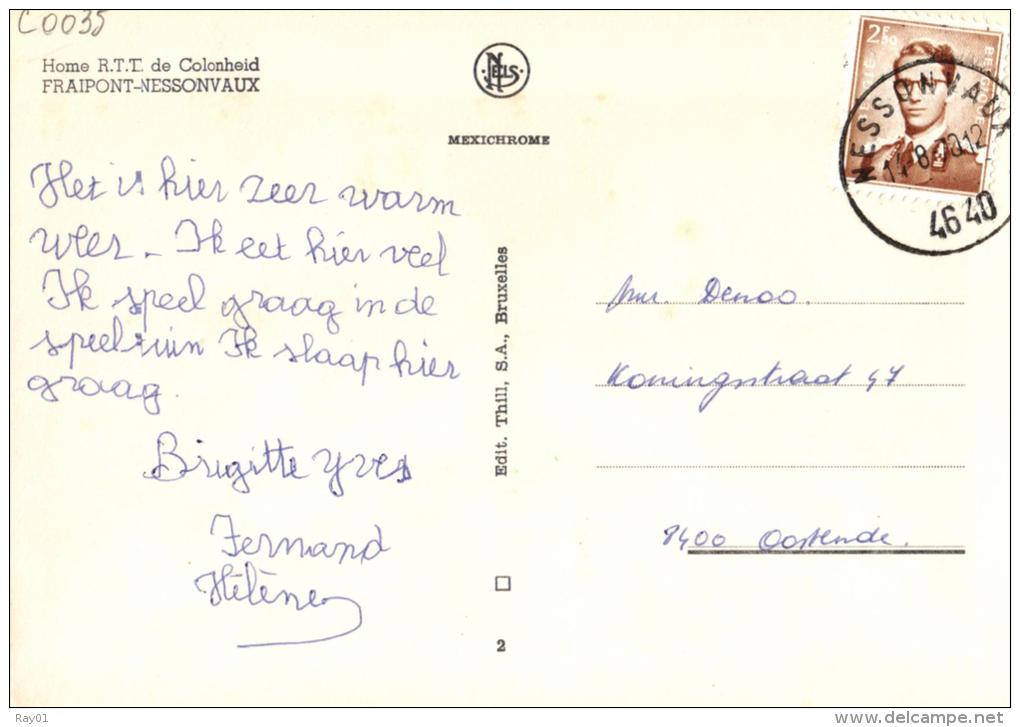 C0035
Home R.T.T. de Colonheid
FRAIPONT-NESSONVAUX
NELS
MEXICHROME
Het is hier zeer warm
weer - Ik eet hier veel
Ik speel graag in de
speeltuin Ik slaap hier
graag.
Brigitte Yves
Fernand
Hélène
Edit. Thill, S.A., Bruxelles
2
2F50
BELGIE
BELGIQUE
NESSONVAUX
8-70 12
4640
Denoo.
Koningstraat 47
8400 Oostende.
Ray01
delcampe.net